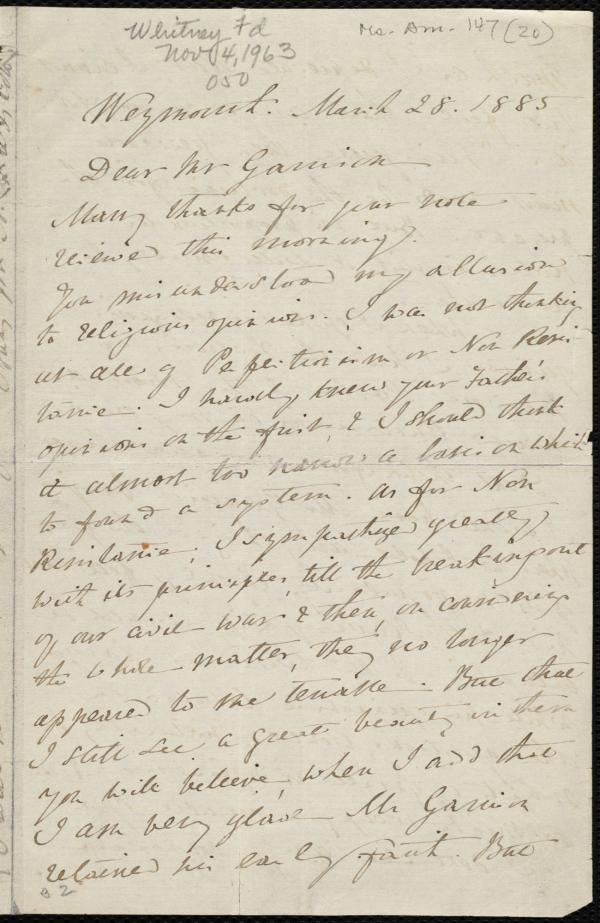 Whitney Fd
Nov 4, 1963
050
Ms. Am. 147 (20)
Weymouth. March 28. 1885
Dear Mr Garrison
Many thanks for your note
recieved this morning.
You misunderstood my allusion
to religious opinions. I was not thinking
at all of Perfectionism or Non Resis
tance. I hardly knew your Father's
opinions on the first, & I should think
it almost too narrow a basis on which
to found a system. As for Non
Resistance, I sympathized greatly
with its principles, till the breaking out
of our civil war & then, on considering
the whole matter, they no longer
appeared to me tenable. But that
I still see a great beauty in them
you will believe, when I add that
I am very glad Mr Garrison
retained his early faith. But
B 2